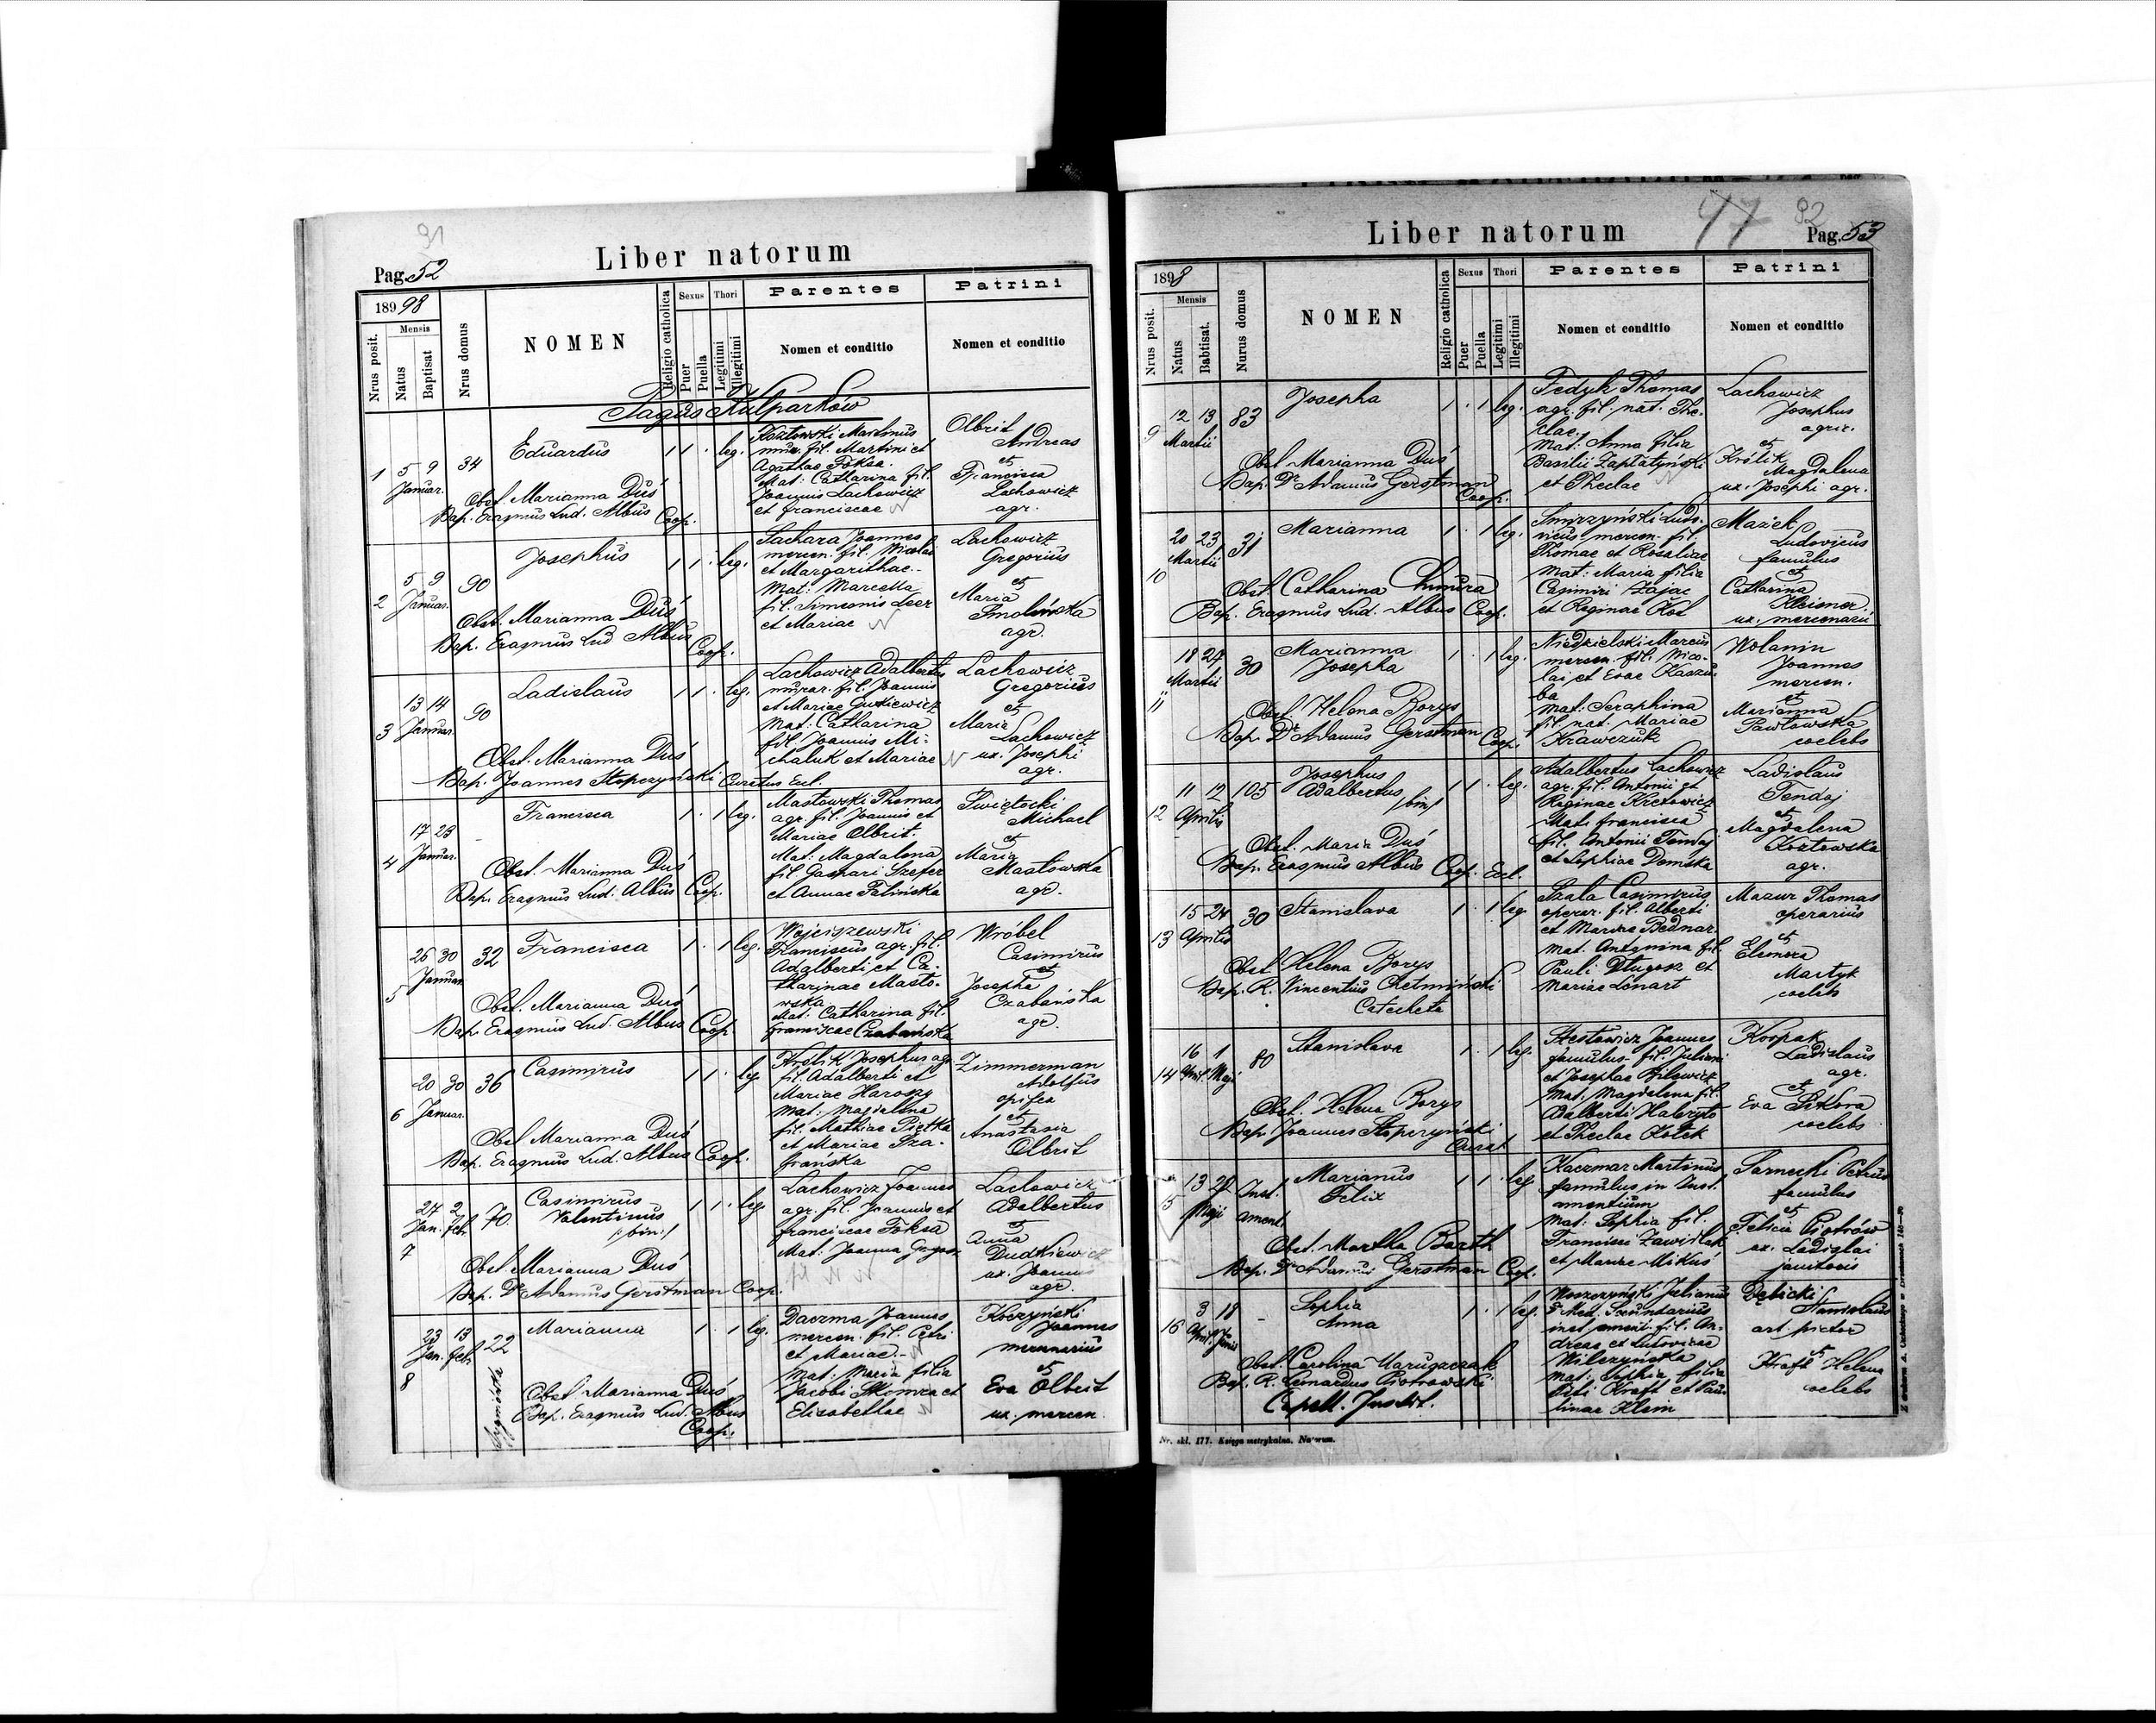 91
Liber natorum
Pag. 52
189 98
Nrus posit.
Mensis
Natus
Baptisat
Nrus domus
NOMEN
Religio catholica
Sexus
Puer
Puella
Thori
Legitimi
Illegitimi
Parentes
Nomen et conditio
Patrini
Nomen et conditio
Pagus Kulparków
1
5 9
Januar.
34
Eduardus
1 1 . leg.
Obst. Marianna Duś
Bap. Erasmus Lud. Albus Coop.
Kozłowski Martinus
mur. fil. Martini et
Agathae Foksa.
Mat: Catharina fil.
Joannis Lachowicz
et Franciscae
Olbrit
Andreas
et
Francisca
Lachowicz
agr.
2
5 9
Januar.
90
Josephus
1 1 . leg.
Obst. Marianna Duś
Bap. Erasmus Lud Albus
Coop.
Sachara Joannes
mercen. fil. Nicolai
et Margarithae.-
Mat: Marcella
fil. Simeonis Leer
et Mariae
Lachowicz
Gregorius
et
Maria
Smolińska
agr.
3
13 14
Januar.
90
Ladislaus
1 1 . leg.
Obst. Marianna Duś
Bap. Joannes Stopczyński Curatus Eccl.
Lachowicz Adalbertus
murar. fil. Joannis
et Mariae Gutkiewicz
Mat: Catharina
fil. Joannis Mi-
chaluk et Mariae
Lachowicz
Gregorius
et
Maria
Lachowicz
ux. Josephi
agr.
4
17 23
Januar.
-
Francisca
1 . 1 leg.
Obst. Marianna Duś
Bap. Erasmus Lud. Albus Coop.
Masłowski Thomas
agr. fil. Joannis et
Mariae Olbrit.
Mat: Magdalena
fil. Gaspari Szefer
et Annae Falińska
Świętocki
Michael
et
Maria
Masłowska
agr.
5
26 30
Januar.
32
Francisca
1 . 1 leg.
Obst. Marianna Duś
Bap. Erasmus Lud. Albus Coop.
Wojciszewski
Franciscus agr. fil.
Adalberti et Ca-
tharinae Masło-
wska
Mat: Catharina fil.
Franciscae Czabańska
Wróbel
Casimirus
et
Josepha
Czabańska
agr.
6
20 30
Januar.
36
Casimirus
1 1 . leg
Obst. Marianna Duś
Bap. Erasmus Lud. Albus Coop.
Królik Josephus agr.
fil. Adalberti et
Mariae Haroszy
Mat: Magdalena
fil. Mathiae Piętka
et Mariae Sza-
frańska
Zimmerman
Adolfus
opifex
et
Anastasia
Olbrit
7
27 2
Jan. Feb.
70
Casimirus
Valentinus
/:bin:/
1 1 . leg.
Obst. Marianna Duś
Bap. Dr Adamus Gerstman Coop.
Lachowicz Joannes
agr. fil. Joannis et
Franciscae Foksa
Mat: Joanna
Lachowicz
Adalbertus
et
Anna
Dudkiewicz
ux. Joannis
agr.
8
23 13
Jan. Feb.
122
Marianna
1 . 1 leg.
Obst. Marianna Duś
Bap. Erasmus Lud. Albus
Coop.
Daczma Joannes
mercen. fil. Petri
et Mariae.-
Mat: Maria filia
Jacobi Skomra et
Elisabethae
Koczyński
Joannes
mercenarius
et
Eva Olbrit
ux. mercen.
77
92
Liber natorum
Pag. 53
1898
Nrus posit.
Mensis
Natus
Babtisat.
Nurus domus
NOMEN
Religio catholica
Sexus
Puer
Puella
Thori
Legitimi
Illegitimi
Parentes
Nomen et conditio
Patrini
Nomen et conditio
9
12 13
Martii
83
Josepha
1 . 1 leg.
Obst. Marianna Duś
Bap. Dr Adamus Gerstman
Coop.
Fedyk Thomas
agr. fil. nat. The-
clae.
Mat: Anna filia
Basilii Zapłatyński
et Theclae
Lachowicz
Josephus
agric.
et
Królik
Magdalena
ux. Josephi agr.
10
20 23
Martii
31
Marianna
1 . 1 leg.
Obst. Catharina Chmura
Bap. Erasmus Lud. Albus Coop.
Smyrzyński Ludo-
vicus mercen. fil.
Thomae et Rosaliae
Mat: Maria filia
Casimiri Zając
et Reginae Kos
Maziek
Ludovicus
famulus
et
Catharina
Kleisner
ux. mercenarii
11
18 27
Martii
30
Marianna
Josepha
1 . 1 leg.
Obst. Helena Borys
Bap. Dr Adamus Gerstman Coop.
Niedzielski Marcus
mercen. fil. Nico-
lai et Evae Kaszu-
ba
Mat: Seraphina
fil. nat. Mariae
Krawczuk
Wolanin
Joannes
mercen.
et
Marianna
Pawłowska
coelebs
12
11 12
Aprilis
105
Josephus
Adalbertus
/bin/
1 1 . leg.
Obst. Maria Duś
Bap. Erasmus Albus Coop. Eccl.
Adalbertus Lachowicz
agr. fil. Antonii et
Reginae Kretowicz
Mat: Francisca
fil. Antonii Tendaj
et Sophiae Domska
Ladislaus
Tendaj
et
Magdalena
Kozłowska
agr.
13
15 24
Aprilis
30
Stanislava
1 . 1 leg.
Obst. Helena Borys
Bap. R. Vincentius Chełmiński
Catecheta
Szala Casimirus
operar. fil. Alberti
et Mariae Bednar.
Mat. Antonina fil.
Pauli Długosz et
Mariae Lenart
Mazur Thomas
operarius
et
Eleonora
Martyk
coelebs
14
16 1
April. Maji
80
Stanislava
1 . 1 leg.
Obst. Helena Borys
Bap. Joannes Stopczyński
Curat
Joannes
famulus fil. Juliani
et Josephae Bilewicz
Mat. Magdalena fil.
Adalberti
et Theclae Kotek
Korpak
Ladislaus
agr.
et
Eva Sikora
coelebs
15
13 29
Maji
Inst.
ament.
Marianus
Felix
1 1 . leg
Obst. Martha Barth
Bap. Dr Adamus Gerstman Coop.
Kaczmar Martinus
famulus in Inst.
amentium
Mat: Sophia fil.
Francisci Zawiślak
et Mariae Mikuś
Sarnecki Petrus
famulus
et
Felicia Piotrów
ux. Ladislai
janitoris
16
3 18
April. Junii
-
Sophia
Anna
1 . 1 leg.
Obst. Carolina
Bap. R. Leonardus Piotrowski
Capell. Instit.
Woszczyński Julianus
Dr Med. Secundarius
inst. ament. fil. An-
dreas et Ludovicae
Wilczyńska
Mat: Sophia filia
Viti Kraft et Pau-
linae Klein
Dębicki
Stanislaus
art. pictor
et
Kraft Helena
coelebs
Nr. skł. 177. Księga metrykalna. Natorum.